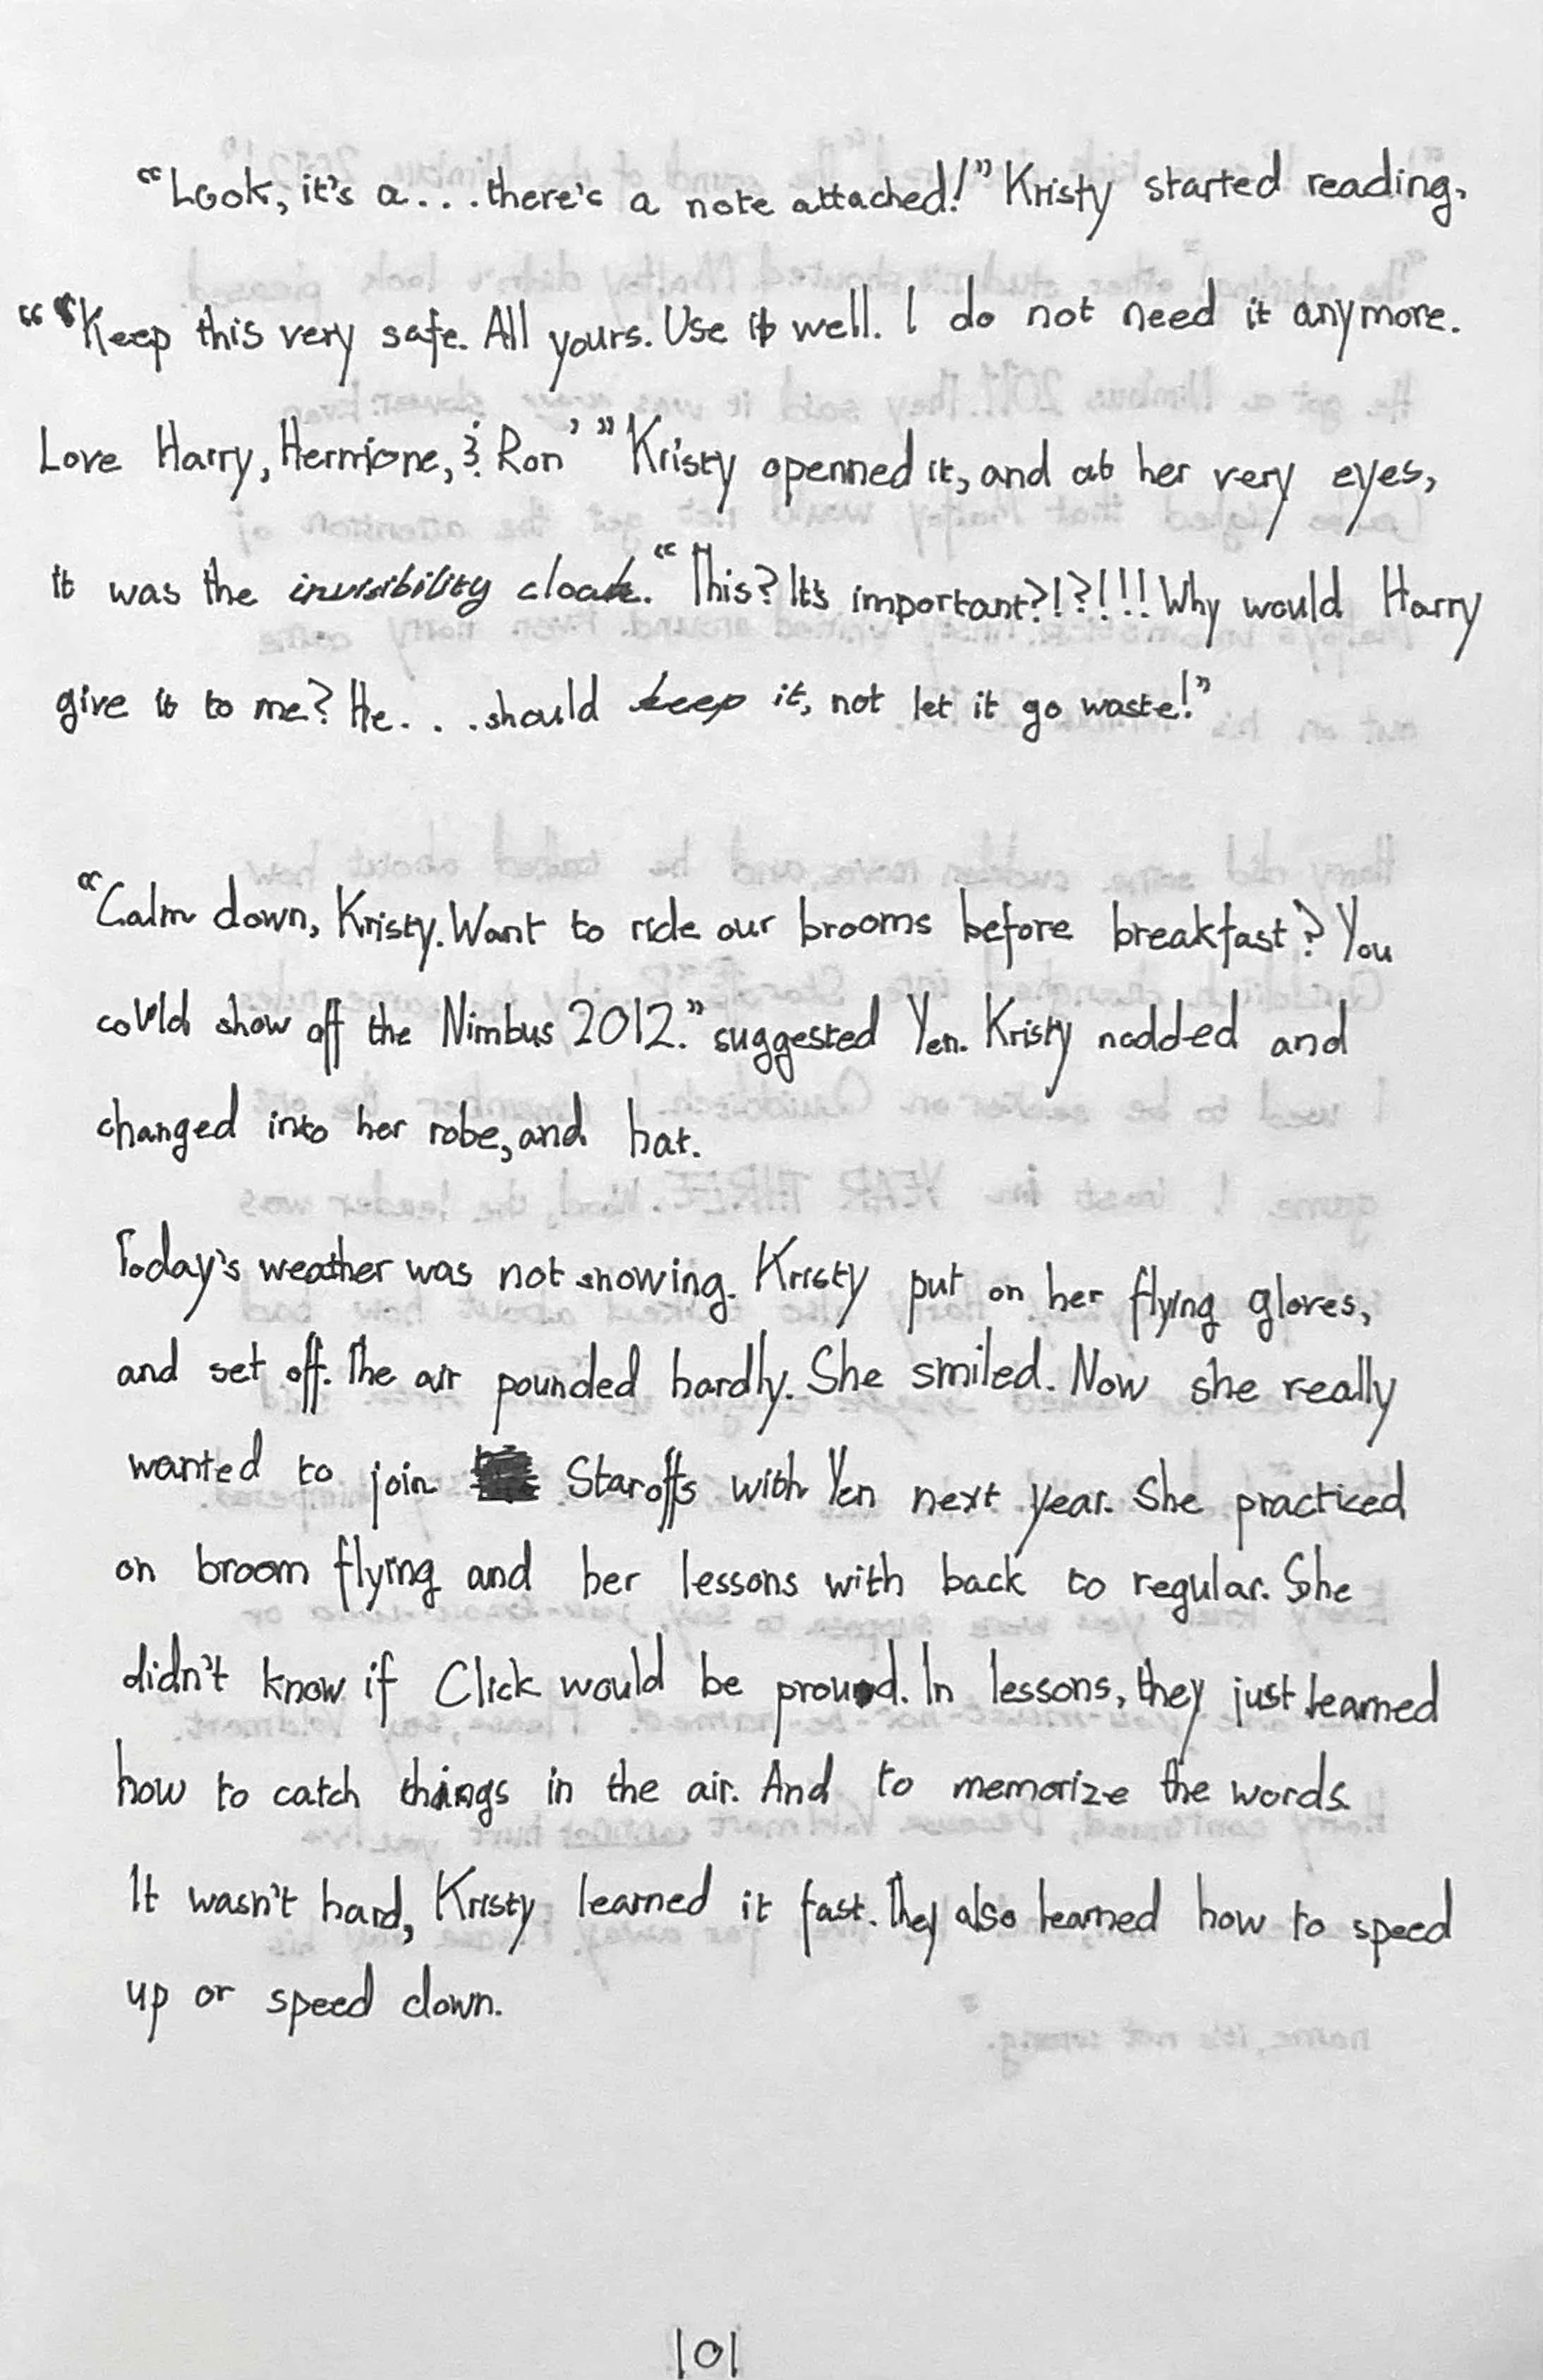 “Look, it's a... there's a note attached!” Kristy started reading,
“‘Keep this very safe. All yours. Use it well. I do not need it anymore.
Love Harry, Hermione, & Ron’” Kristy openned it, and at her very eyes,
it was the invisibility cloak. “This? It's important?!?!!! Why would Harry
give it to me? He... should keep it, not let it go waste!”
“Calm down, Kristy. Want to ride our brooms before breakfast? You
could show off the Nimbus 2012.” suggested Yen. Kristy nodded and
changed into her robe, and hat.
Today's weather was not snowing. Kristy put on her flying gloves,
and set off. The air pounded hardly. She smiled. Now she really
wanted to join Staroffs with Yen next year. She practiced
on broom flying and her lessons with back to regular. She
didn't know if Click would be proud. In lessons, they just learned
how to catch things in the air. And to memorize the words.
It wasn't hard, Kristy learned it fast. They also learned how to speed
up or speed down.
101